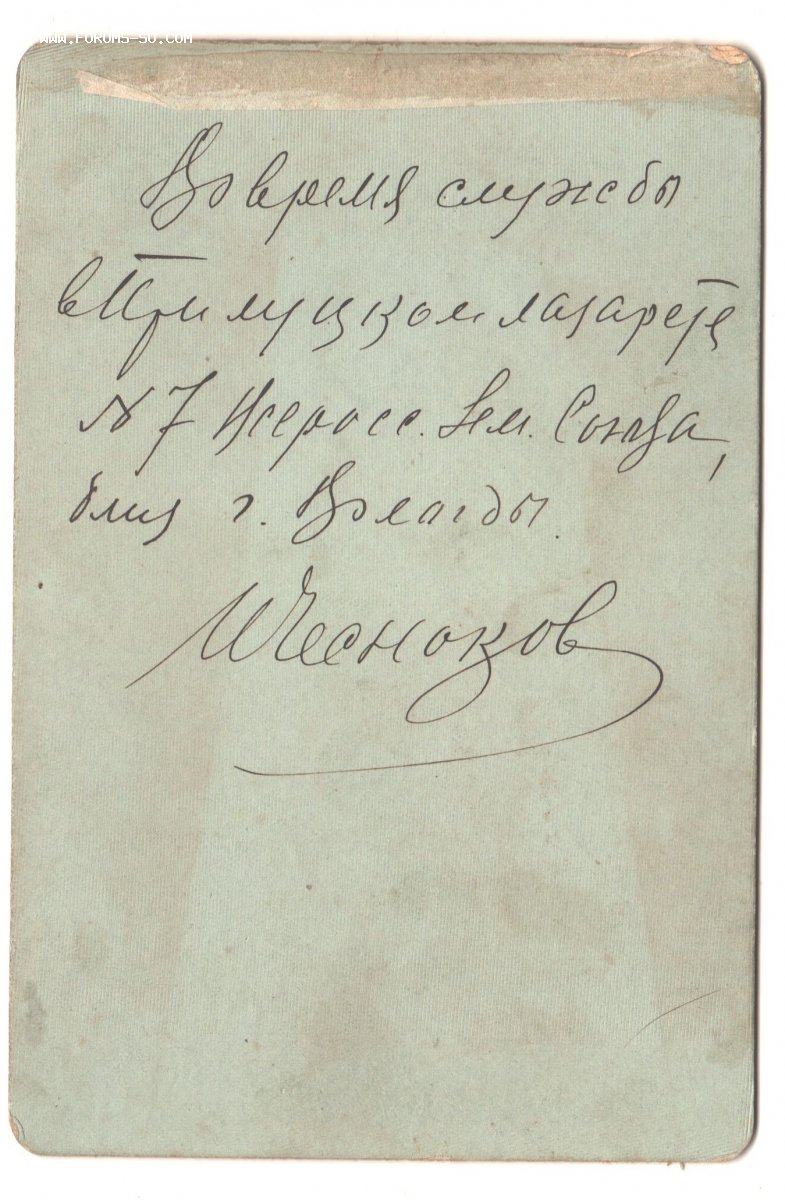 WWW.FORUMS-SU.COM
Во время службы
в Прилуцком лазарете
№ 7 Всеросс. Зем. Союза,
близ г. Вологды.
И Чесноков